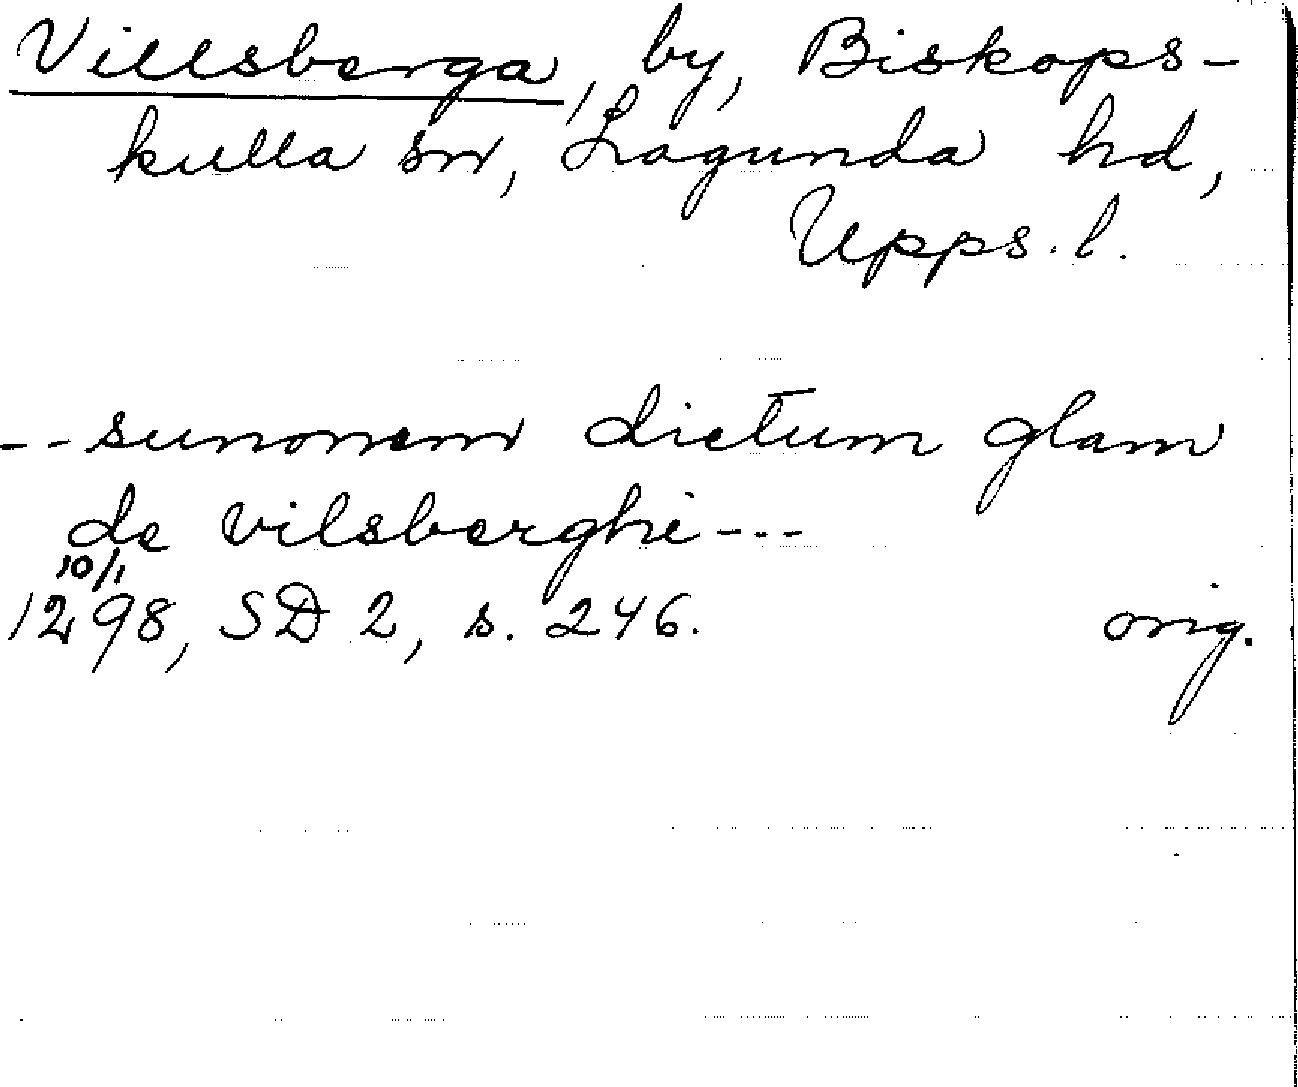 Villsberga, by, Biskops-
kulla sn, Lagunda hd,
Upps. l.
-- sunonem dictum glam
de vilsberghi ---
10/1
1298, SD 2, s. 246. orig.